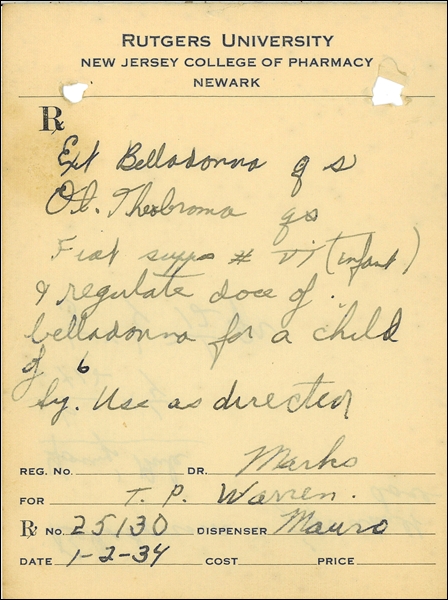 RUTGERS UNIVERSITY
NEW JERSEY COLLEGE OF PHARMACY
NEWARK
℞
Ext Belladonna q s
Ol. Theobroma qs
Fiat supps # VI (infant)
& regulate doce of
belladonna for a child
of 6
Sy. Use as directed
REG. NO. DR. Marks
FOR T. P. Warren.
℞ NO. 25130 DISPENSER Mauro
DATE 1-2-34 COST PRICE